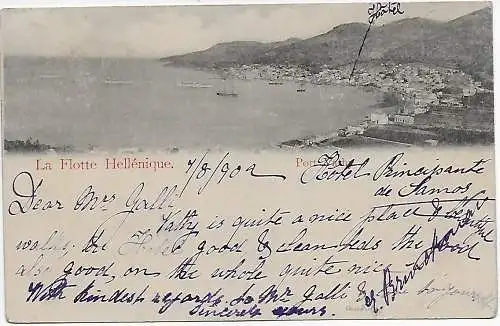 Hotel
La Flotte Hellénique.
Port
7/8/902
Hôtel Principante
de Samos
Dear Mrs Galli
Vathy is quite a nice place &
walks, the Hotel good & clean beds the food
also good, on the whole quite nice
With kindest regards to Mr Galli &
Sincerely yours.